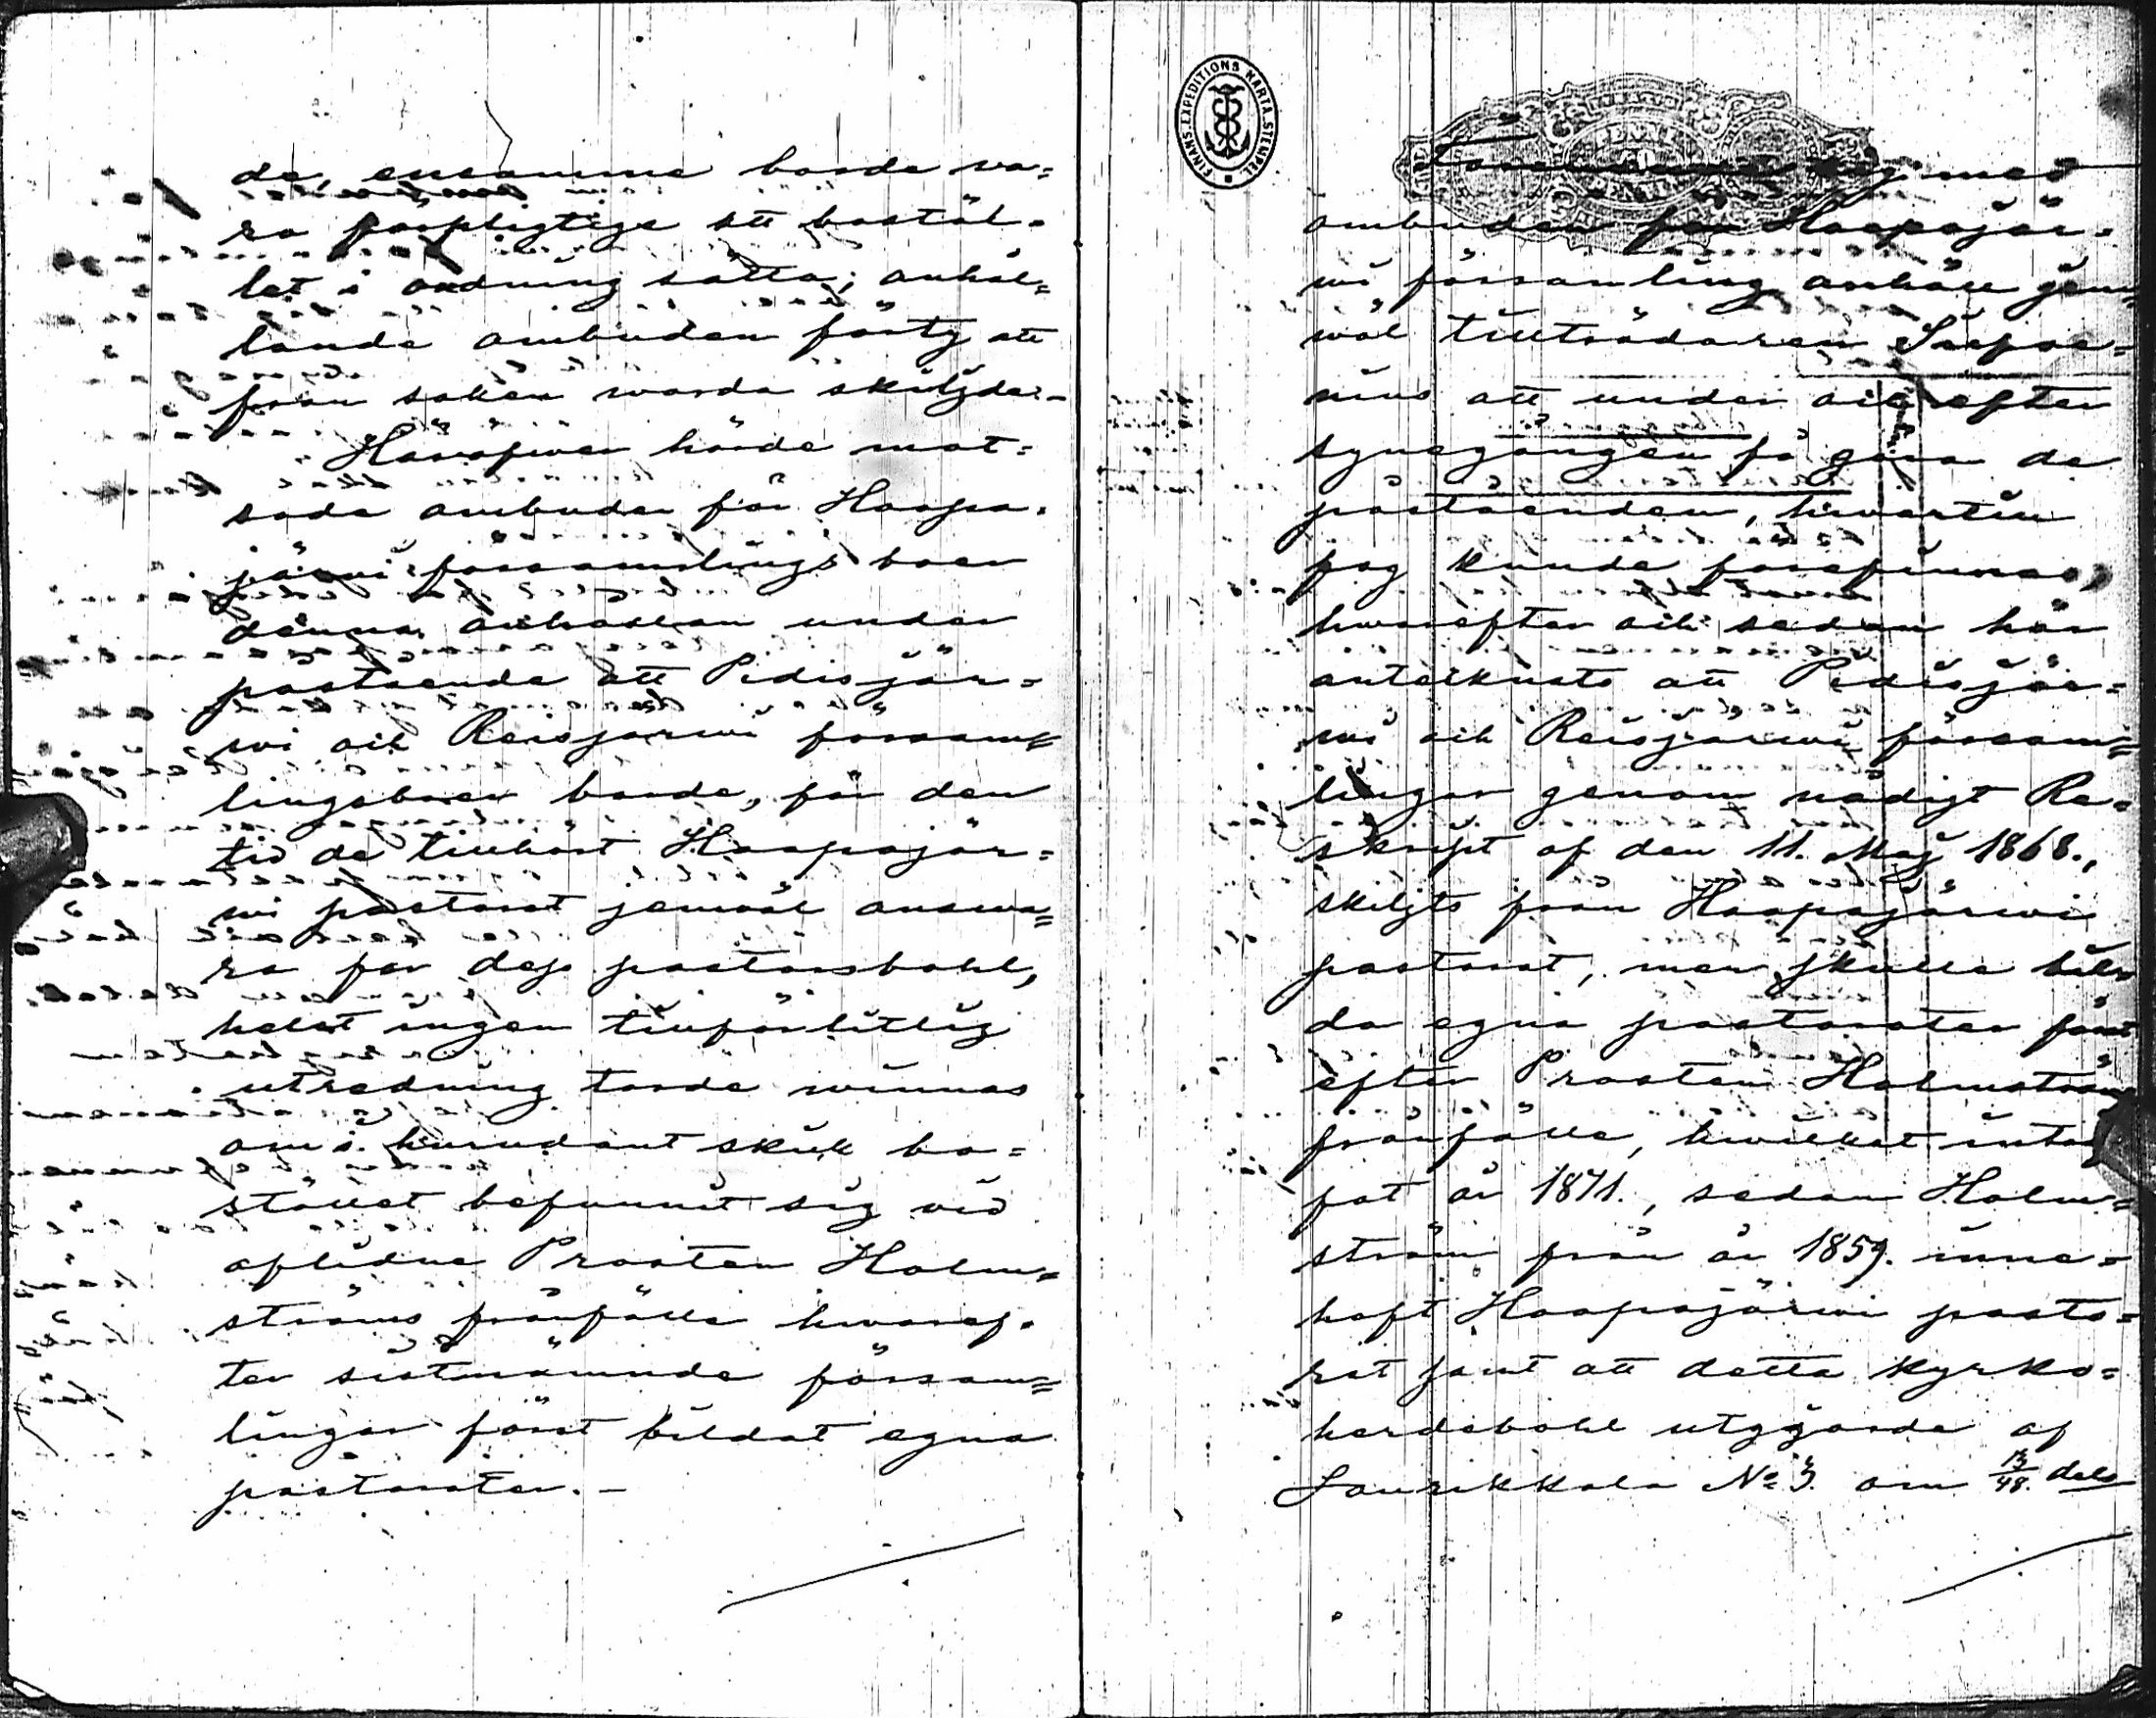 de, ensamme borde va=
ra förpligtige att bostäl=
let i ordning sätta; anhål=
lande ombuden förty att
från saken warda skiljde.-
Häröfwer hörde mot=
sade ombuden för Haapa=
järwi församlingsboer
denna anhållan under
påstående att Pidisjär=
wi och Reisjärwi försam=
lingsboer borde, för den
tid de tillhört Haapajär=
wi pastorat jemwäl answa=
ra för dess pastorsbohl,
helst ingen tillförlitlig
utredning torde winnas
om i hurudant skick bo=
stället befunnit sig wid
aflidne Prosten Holm=
ströms frånfälle hwaref=
ter sistnämnde försam=
lingar först bildat egna
pastorater.-
FINANS-EXPEDITIONS KARTA.STEMPEL
sig med
ombuden för Haapajär=
wi församling anhöll jem
wäl tillträdaren
att under och efter
synegången få göra de
påståenden, hwartill
fog kunde förefinnas,
hwarefter och sedan här
anteiknats att Pidisjär=
wi och Reisjärwi försam=
lingar genom nådigt Re=
skript af den 11. Maj 1868.,
skiljts från Haapajärwi
pastorat, men skulle bil=
da egna pastorater först
efter Prosten Holmströms
frånfälle, hwilket inträf
fat år 1871., sedan Holm=
ström från år 1859. inne=
haft Haapajärwi pasto=
rat samt att detta kyrko=
herdebohl utgjorde af
Lourikkala No 3. om 13/48. dels